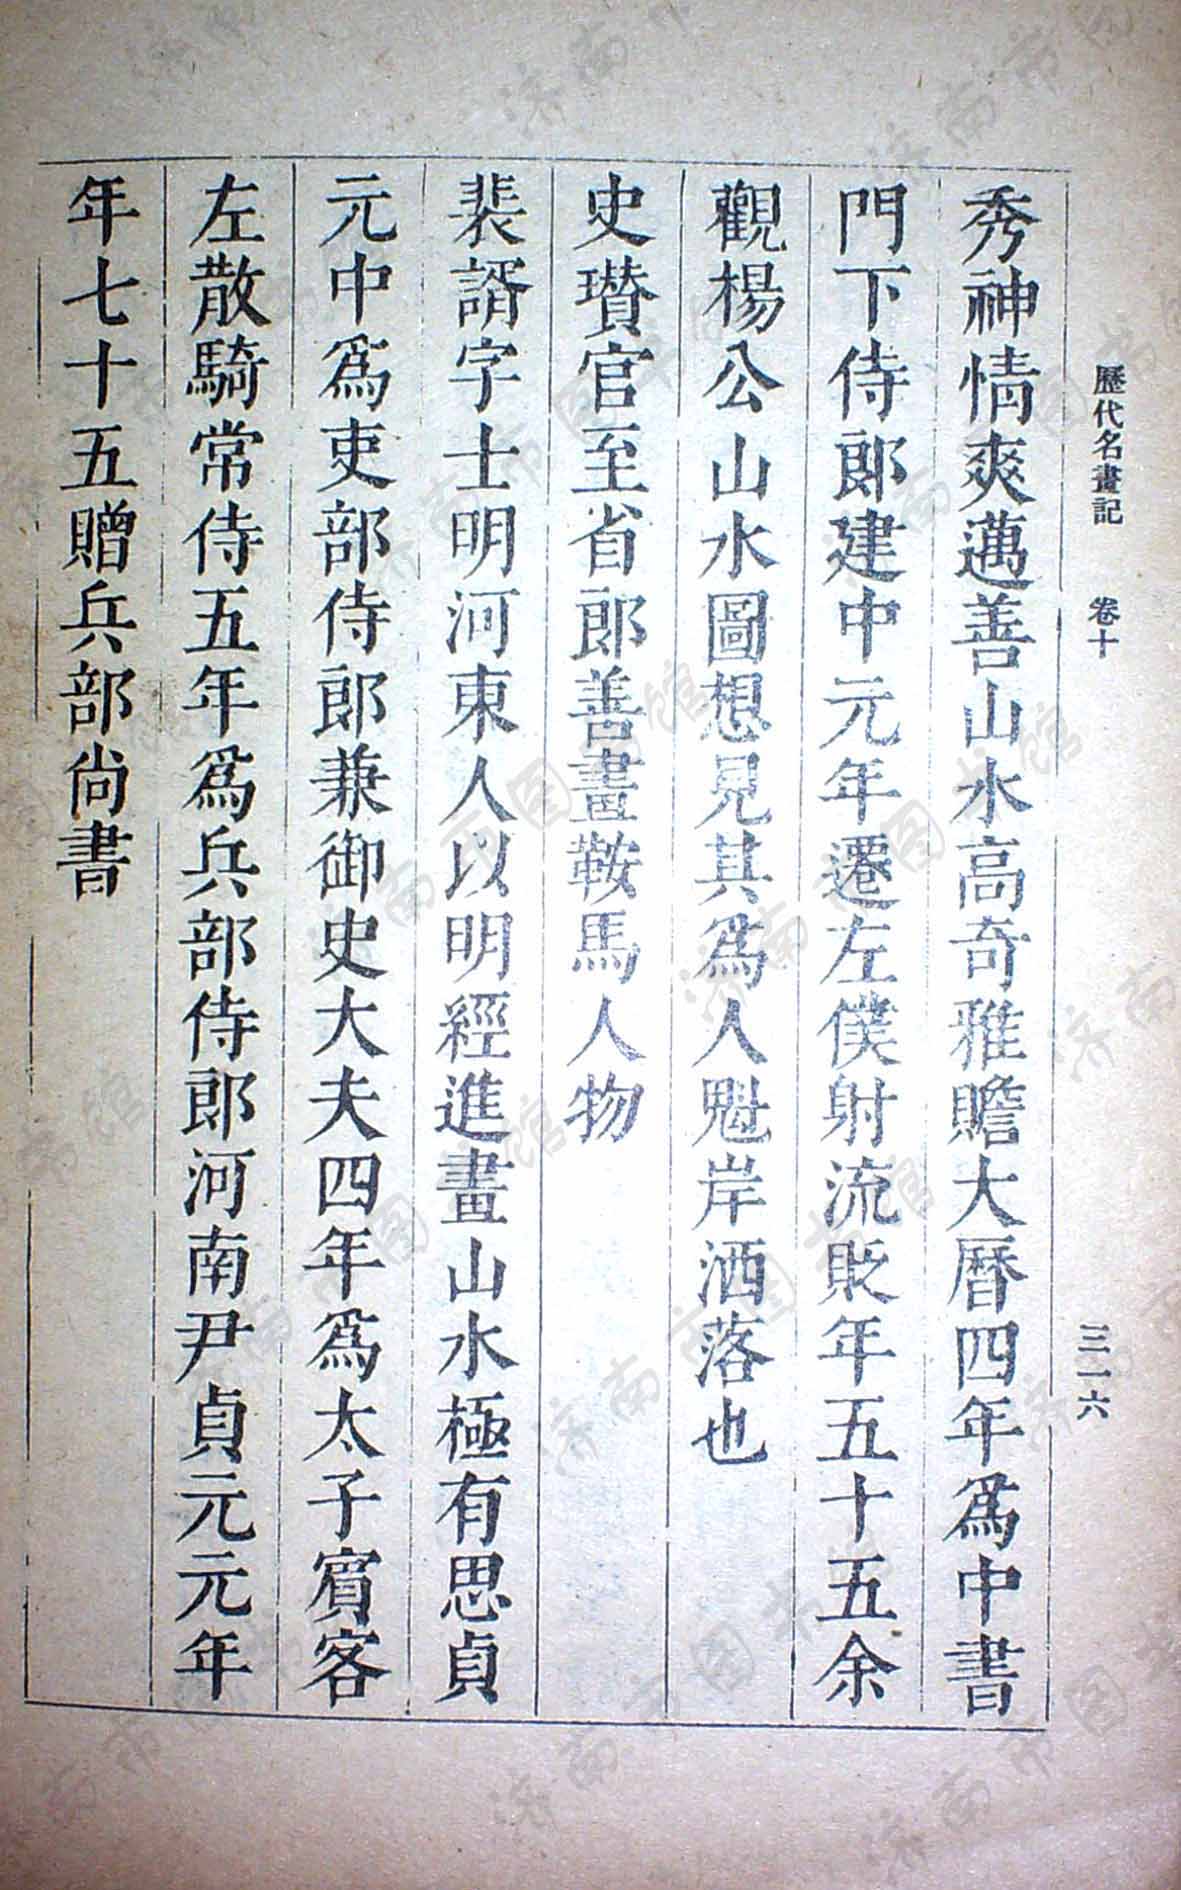 歷代名畫記　卷十　三一六
秀神情爽邁善山水高奇雅贍大曆四年爲中書
門下侍郎建中元年遷左僕射流貶年五十五余
觀楊公山水圖想見其爲人魁岸洒落也
史瓚官至省郎善畫鞍馬人物
裴諝字士明河東人以明經進畫山水極有思貞
元中爲吏部侍郎兼御史大夫四年爲太子賓客
左散騎常侍五年爲兵部侍郎河南尹貞元元年
年七十五贈兵部尚書
济南市图书馆